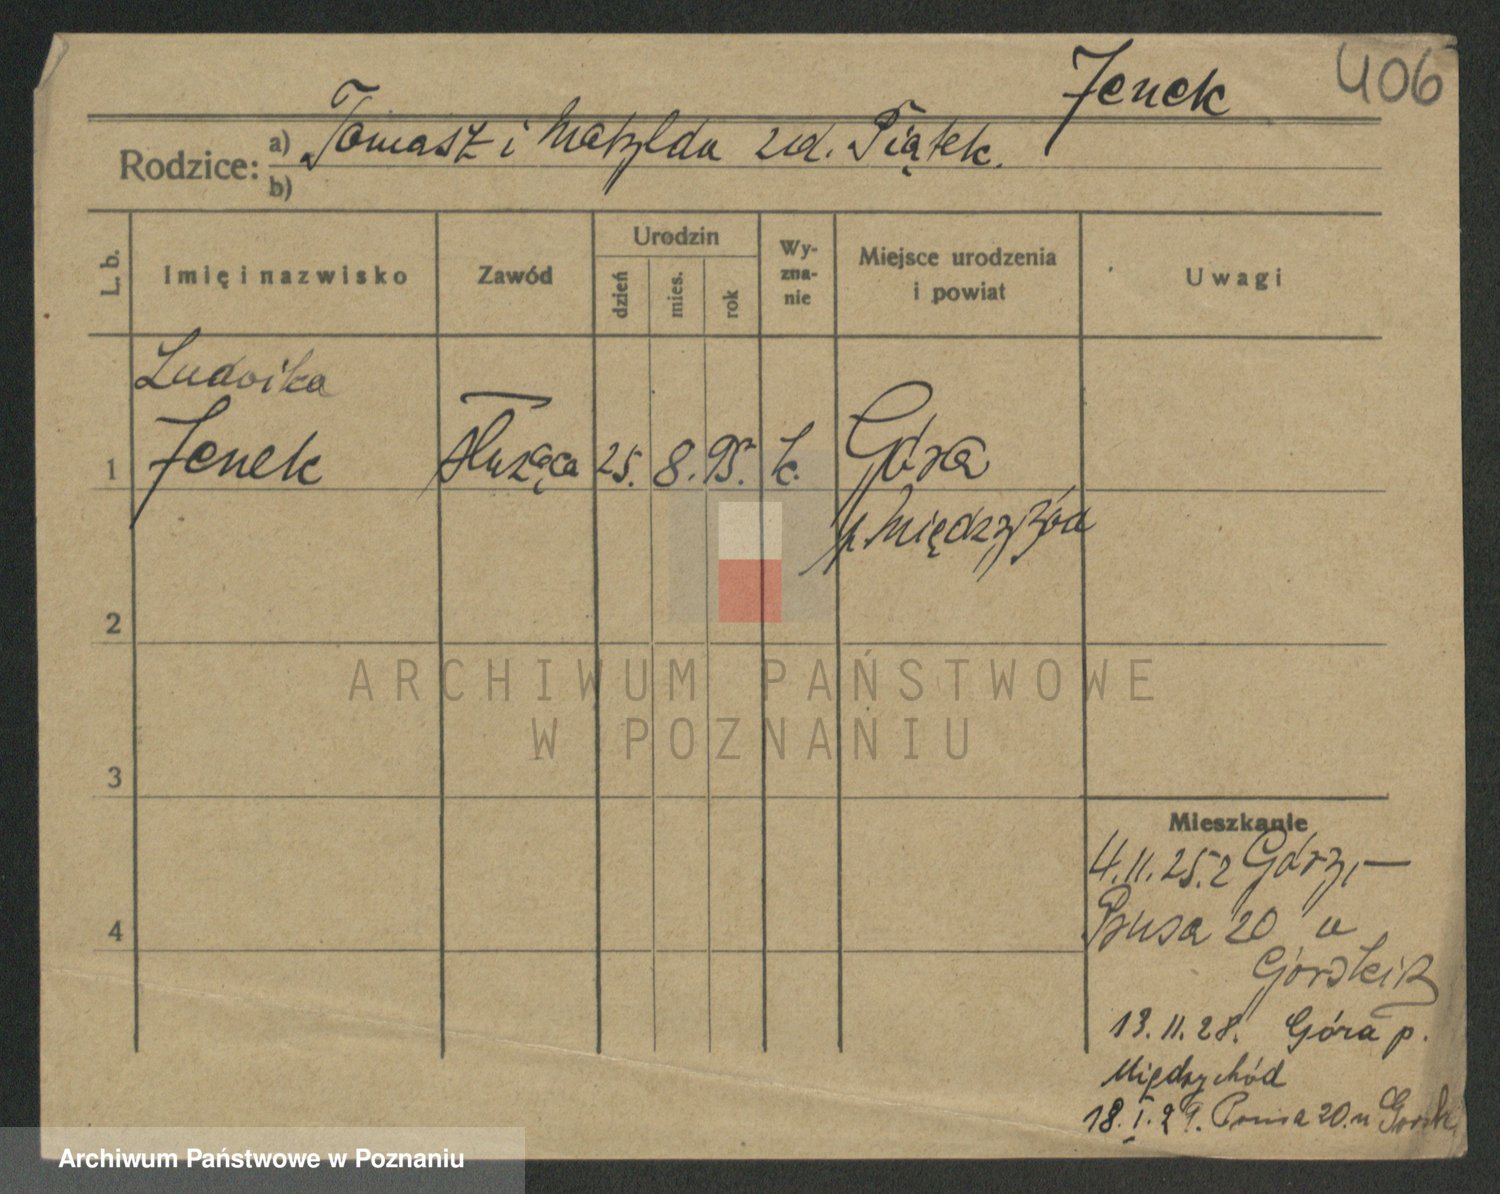 Jenek 406
Rodzice: a) Tomasz i Matylda zd. Piątek.
b)
L. b. Imię i nazwisko Zawód Urodzin dzień mies. rok Wy-zna-nie Miejsce urodzenia i powiat Uwagi
Ludwika
1 Jenek służąca 25. 8. 95. k. Góra
p. Międzychód
2
ARCHIWUM PAŃSTWOWE
W POZNANIU
3
Mieszkanie
4.11.25. z Góry,—
4 Prusa 20 u
Górskich
13.11.28. Góra p.
Międzychód
18.I.29. Prusa 20. u Gorsk
Archiwum Państwowe w Poznaniu